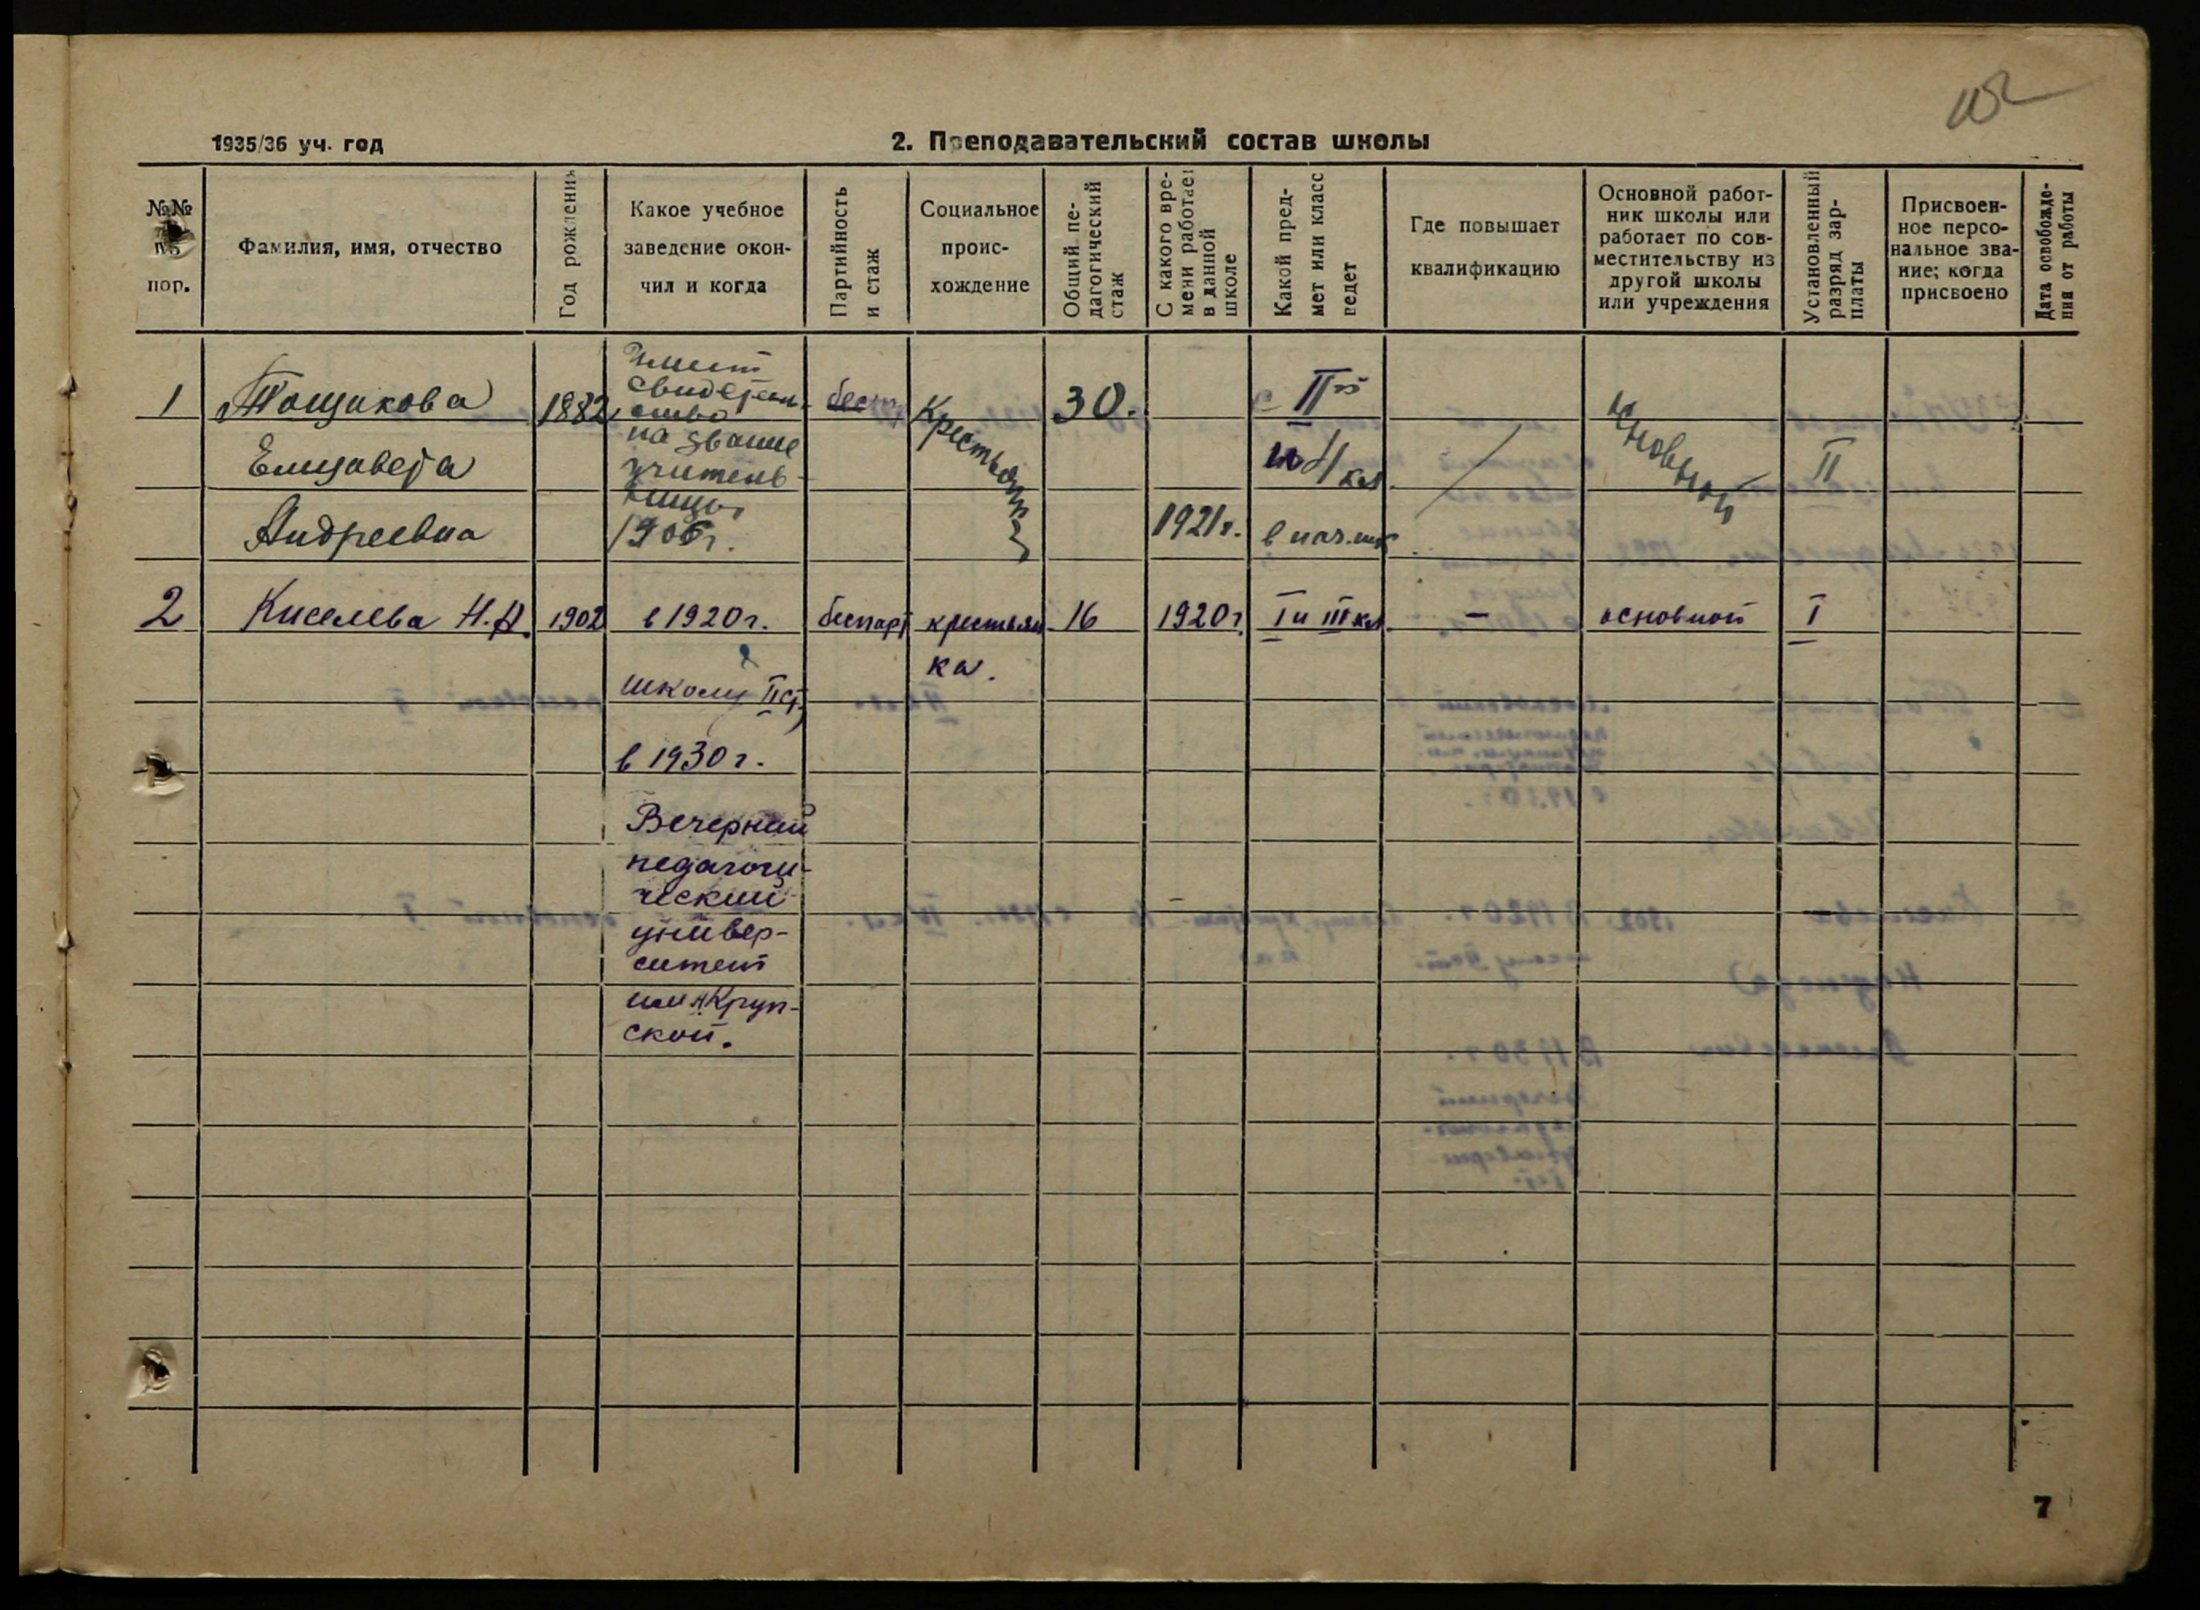 1935/36 уч. год
2. Преподавательский состав школы
№№
пор.
Фамилия, имя, отчество
Год рождения
Какое учебное
заведение окон-
чил и когда
Партийность
и стаж
Социальное
проис-
хождение
Общий пе-
дагогический
стаж
С какого вре-
мени работает
в данной
школе
Какой пред-
мет или класс
ведет
Где повышает
квалификацию
Основной работ-
ник школы или
работает по сов-
местительству из
другой школы
или учреждения
Установленный
разряд зар-
платы
Присвоен-
ное персо-
нальное зва-
ние; когда
присвоено
Дата освобожде-
ния от работы
1
Тощакова
Елизавета
Андреевна
1882
Имеет
свидетель-
ство
на звание
учитель-
ницы
1906 г.
бесп
Крестьянк
30.
1921 г.
II
и кл
в нач. шк
основной
II
2
Киселева Н. А.
1902
в 1920 г.
школу II ст,
в 1930 г.
Вечерний
педагоги-
ческий
универ-
ситет
им. Круп-
ской.
беспарт
крестьян
ка.
16
1920 г.
I и III кл
—
основной
I
7